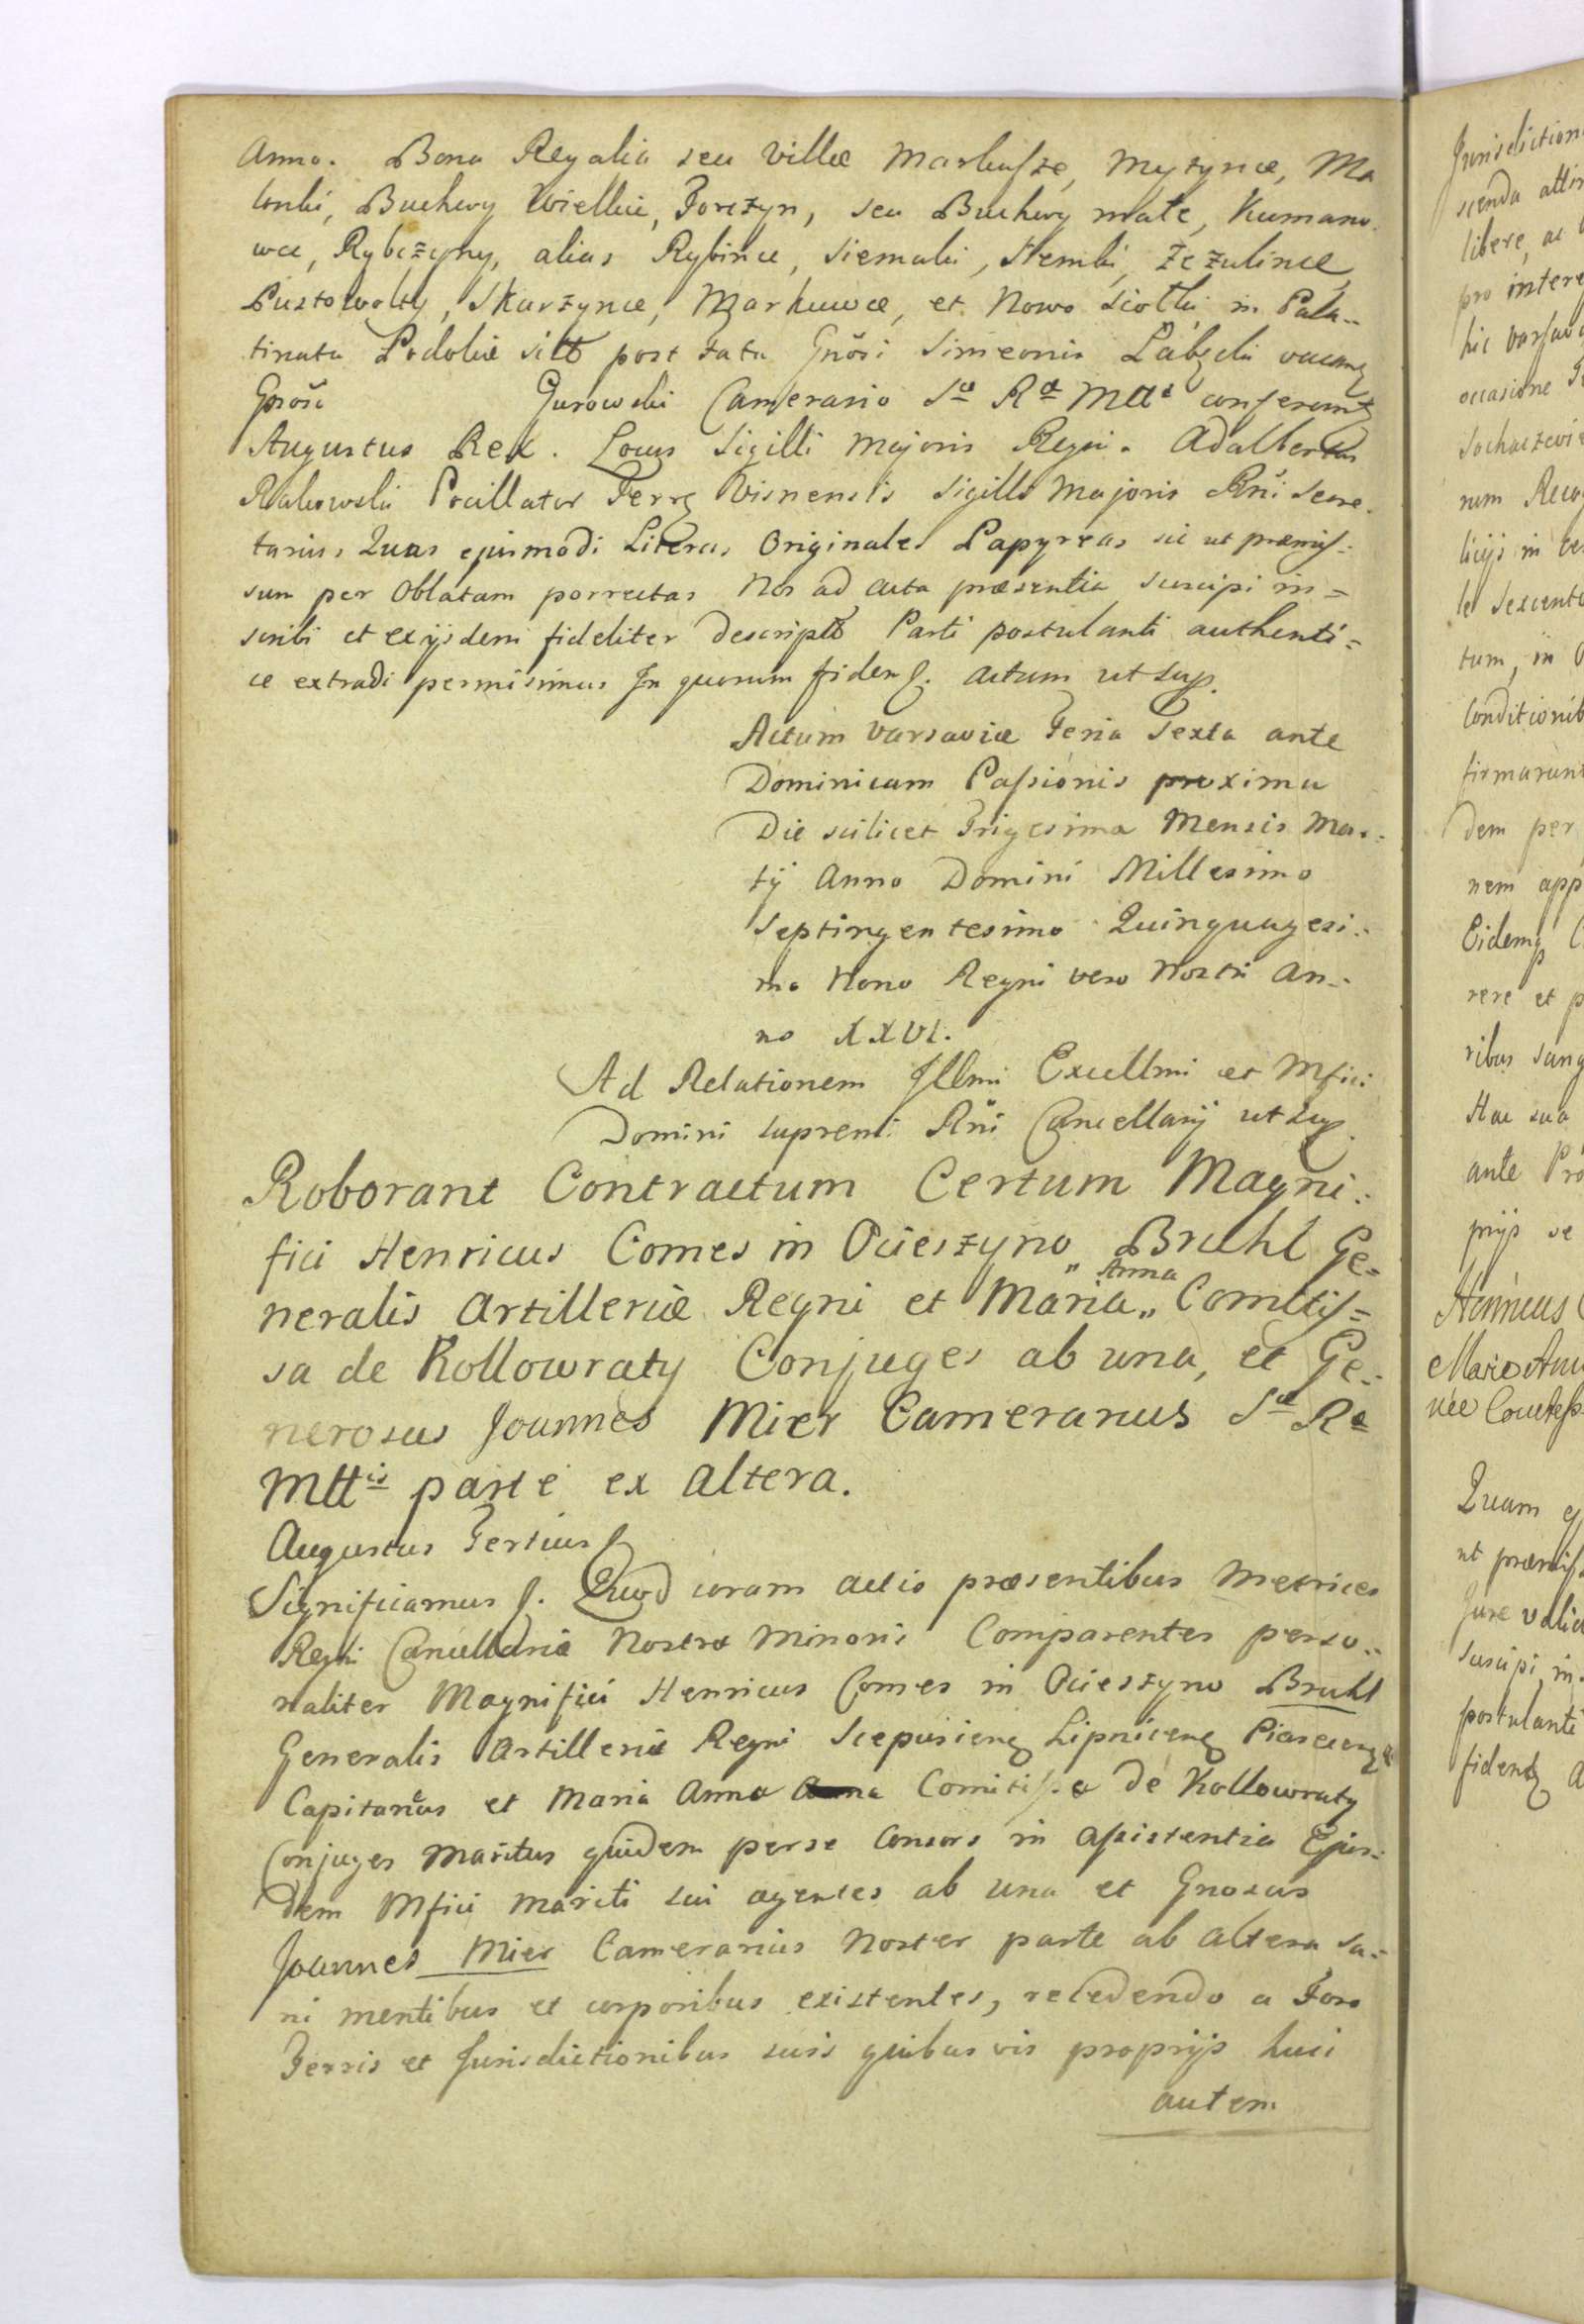 Anno. Bona Regalia seu Villæ Markusze, Mytynce, Ma
lonki, Buchny Wielkie, Forczyn, seu Buchny małe, Kumano
wce, Rybczyny, alias Rybince, Siemaki, Stemki, Zezulince
Pustowolty, Skarzynce, Markuwce, et Nowo Siołki in Pala-
tinatu Podoliæ sitt post fata Gnosi Simeonis vacan
Gnoso Gurowski Camerario Sæ Ræ Mtts conferunt
Augustus Rex. Locus Sigilli Majoris Regni. Adalbertus
Rakowski Pocillator Terræ Visnensis Sigilli Majoris Rni Secre-
tarius, Quas ejusmodi Literas Originales Papyreas sic ut præmis:
sum per Oblatam porrectas Nos ad acta præsentia suscipi in=
scribi et ex ijsdem fideliter descriptō Parti postulanti authenti=
ce extradi permisimus In quorum fidem. Actum ut sup.
Actum Varsaviæ Feria Sexta ante
Dominicam Passionis proxima
Die scilicet Trigesima Mensis Mar:
tij Anno Domini Millesimo
Septingentesimo Quinquagesi:
mo Nono Regni vero Nostri An:
no XXVI.
Ad Relationem Illmi Excellmi et Mfici
Domini Supremi Rni Cancellarij ut sup.
Roborant Contractum Certum Magni:
fici Henricus Comes in Ocieszyno „ Bruhl Ge=
neralis Artilleriæ Regni et Maria „ Anna Comitis=
sa de Kollowraty Conjuges ab una, et Ge:
nerosus Joannes Mier Camerarius Sæ Ræ
Mttis parte ex altera.
Augustus Tertius
Significamus. Quod coram actis præsentibus Metrices
Regni Cancellariæ Nostræ Minoris Comparentes perso:
naliter Magnifici Henricus Comes in Ocieszyno Bruhl
Generalis Artilleriæ Regni Scepusien Lipnicen Piasecen &
Capitaneus et Maria Anna Comitissa de Kollowraty
Conjuges Maritus quidem per se Consors in assistentia Ejus:
dem Mfici Mariti sui agentes ab una et Gnosus
Joannes Mier Camerarius Noster parte ab altera sa:
ni mentibus et corporibus existentes, recedendo a Foro
Terris et Jurisdictionibus suis quibusvis proprijs huic
autem
Jurisdiction
scenda attin
libere, ac
pro intere
hic Varsav
occasione
Sochaczevi
num Recog
licijs in
le Sexcente
tum, in
Conditionib
firmarunt
dem per
nem app
Eidemq C
rere et p
ribus sang
Hac sua
ante Pro
prijs se
Henricus C
Marie Ann
née Comtess
Quam ej
ut præmiss
Jure valid
suscipi, in
postulanti
fidem A